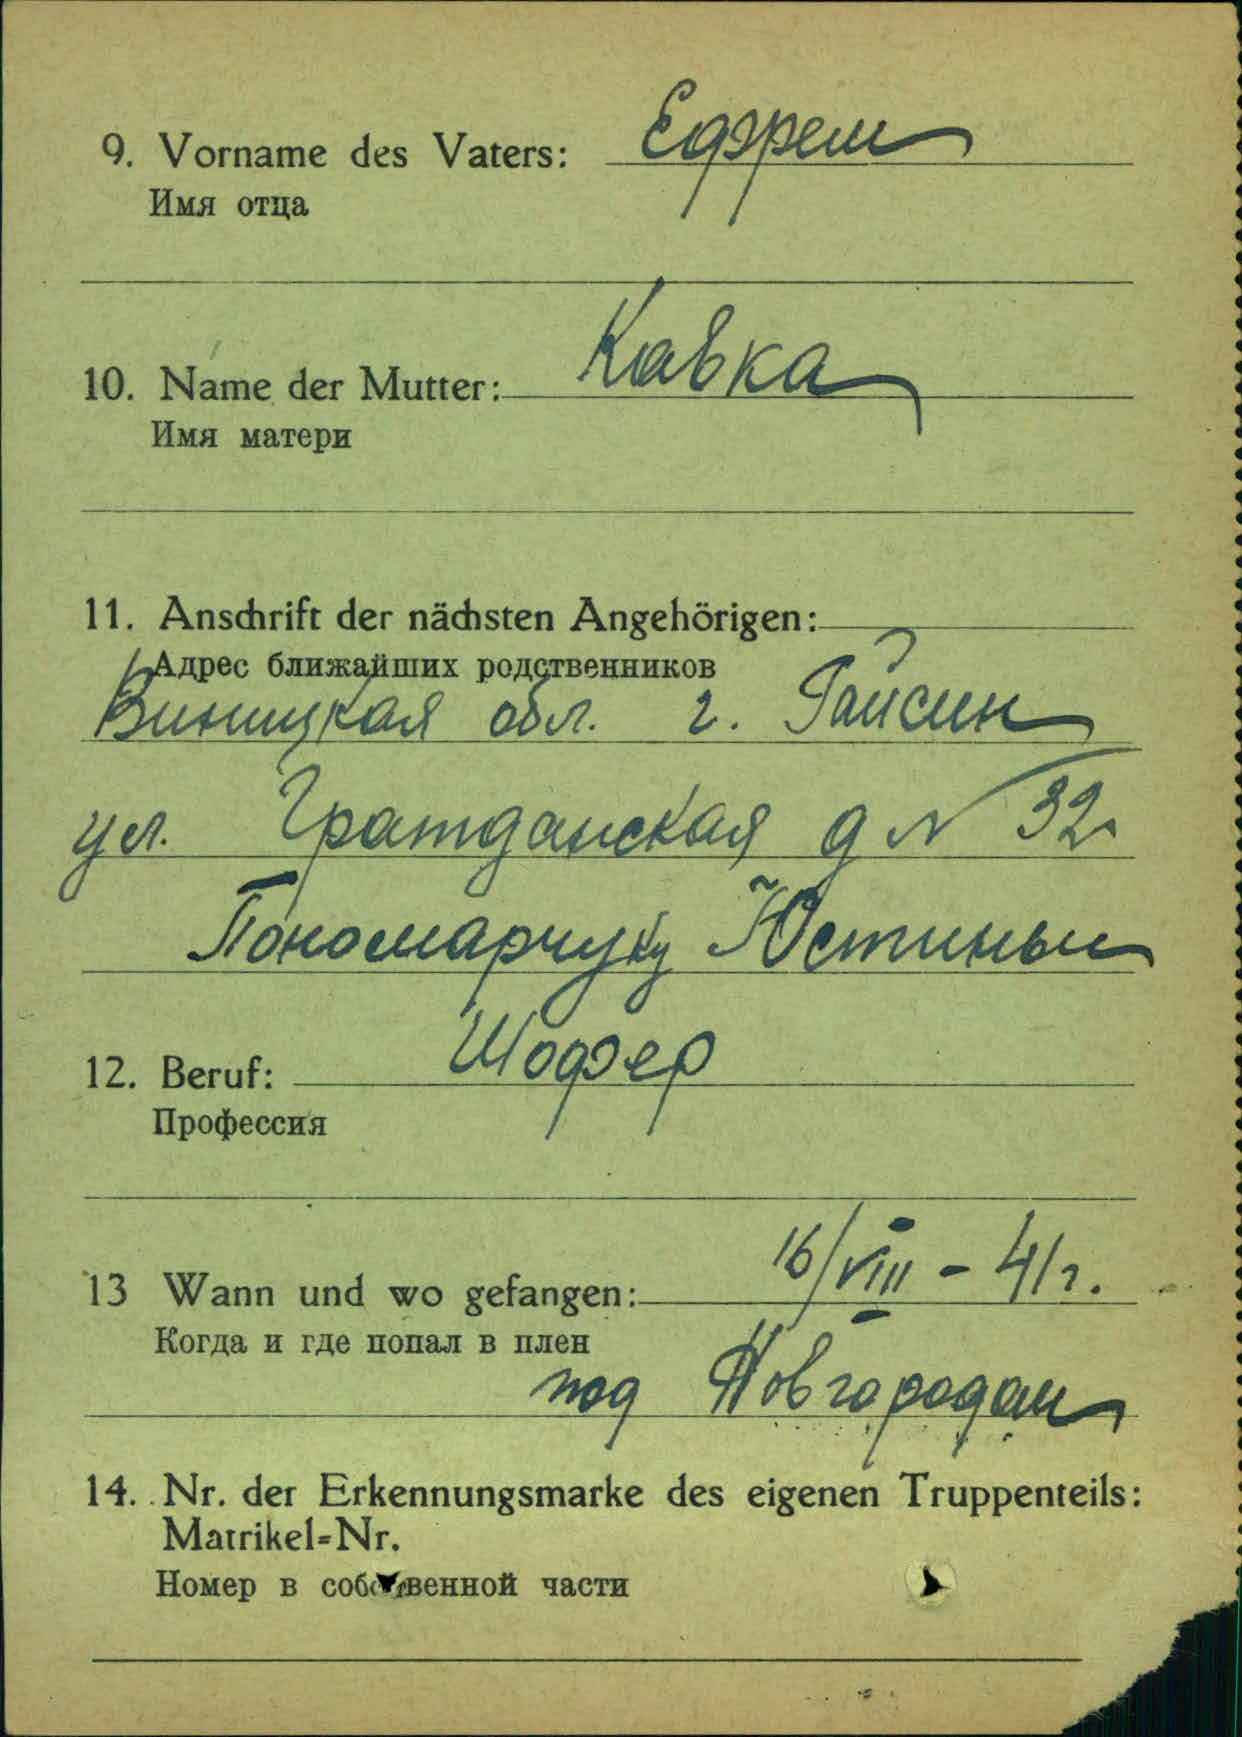 9. Vorname des Vaters: Ефрем
Имя отца
10. Name der Mutter: Кавка
Имя матери
11. Anschrift der nächsten Angehörigen:
Адрес ближайших родственников
Виницкая обл. г. Гайсин
ул. Гратданская д № 32
Пономарчуку Юстиньи
12. Beruf: Шофер
Профессия
13 Wann und wo gefangen: 16/VIII - 41 г.
Когда и где попал в плен
под Новгородам
14. Nr. der Erkennungsmarke des eigenen Truppenteils:
Matrikel=Nr.
Номер в собственной части